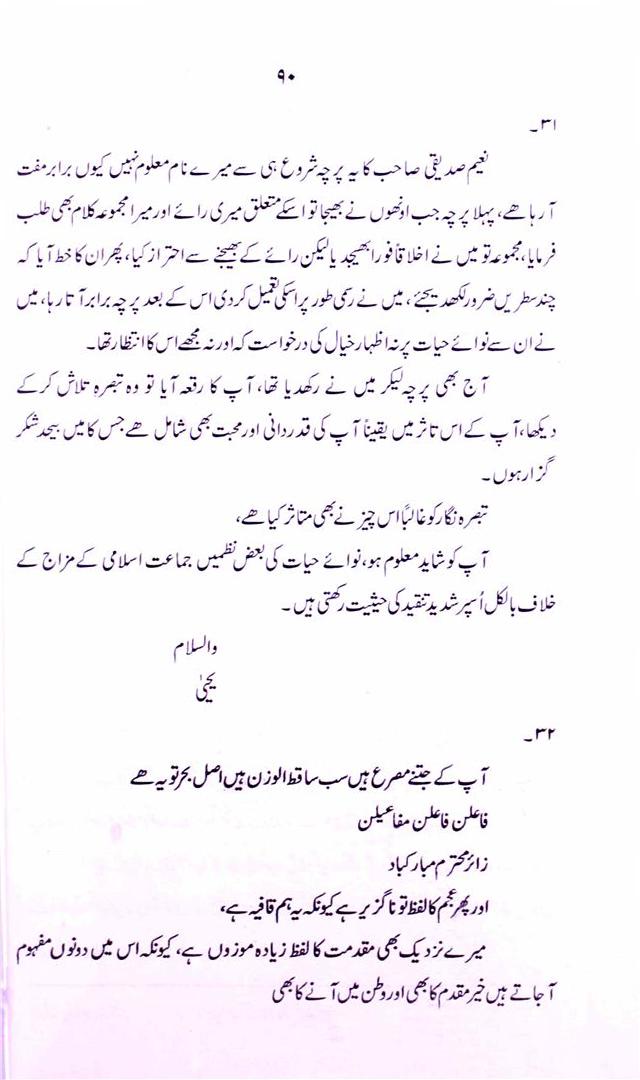 ۹۰
۳۱۔
نعیم صدیقی صاحب کا یہ پرچہ شروع ہی سے میرے نام معلوم نہیں کیوں برابر مفت
آرہا ھے، پہلا پرچہ جب اونھوں نے بھیجا تو اسکے متعلق میری رائے اور میرا مجموعہ کلام بھی طلب
فرمایا، مجموعہ تو میں نے اخلاقاً فوراً بھیجدیا لیکن رائے کے بھیجنے سے احتراز کیا، پھر ان کا خط آیا کہ
چند سطریں ضرور لکھدیجئے، میں نے رسمی طور پر اسکی تعمیل کردی اس کے بعد پرچہ برابر آتا رہا، میں
نے ان سے نوائے حیات پر نہ اظہار خیال کی درخواست کہ اور نہ مجھے اس کا انتظار تھا۔
آج بھی پرچہ لیکر میں نے رکھدیا تھا، آپ کا رقعہ آیا تو وہ تبصرہ تلاش کرکے
دیکھا، آپ کے اس تاثر میں یقیناً آپ کی قدردانی اور محبت بھی شامل ھے جس کا میں بیحد شکر
گزار ہوں۔
تبصرہ نگار کو غالباً اس چیز نے بھی متاثر کیا ھے،
آپ کو شاید معلوم ہو، نوائے حیات کی بعض نظمیں جماعت اسلامی کے مزاج کے
خلاف بالکل اُسپر شدید تنقید کی حیثیت رکھتی ہیں۔
والسلام
یحییٰ
۳۲۔
آپ کے جتنے مصرع ہیں سب ساقط الوزن ہیں اصل بحر تو یہ ھے
فاعلن فاعلن مفاعیلن
زائر محترم مبارکباد
اور پھر عجم کا لفظ تو ناگزیر ہے کیونکہ یہ ہم قافیہ ہے،
میرے نزدیک بھی مقدمت کا لفظ زیادہ موزوں ہے، کیونکہ اس میں دونوں مفہوم
آجاتے ہیں خیر مقدم کا بھی اور وطن میں آنے کا بھی